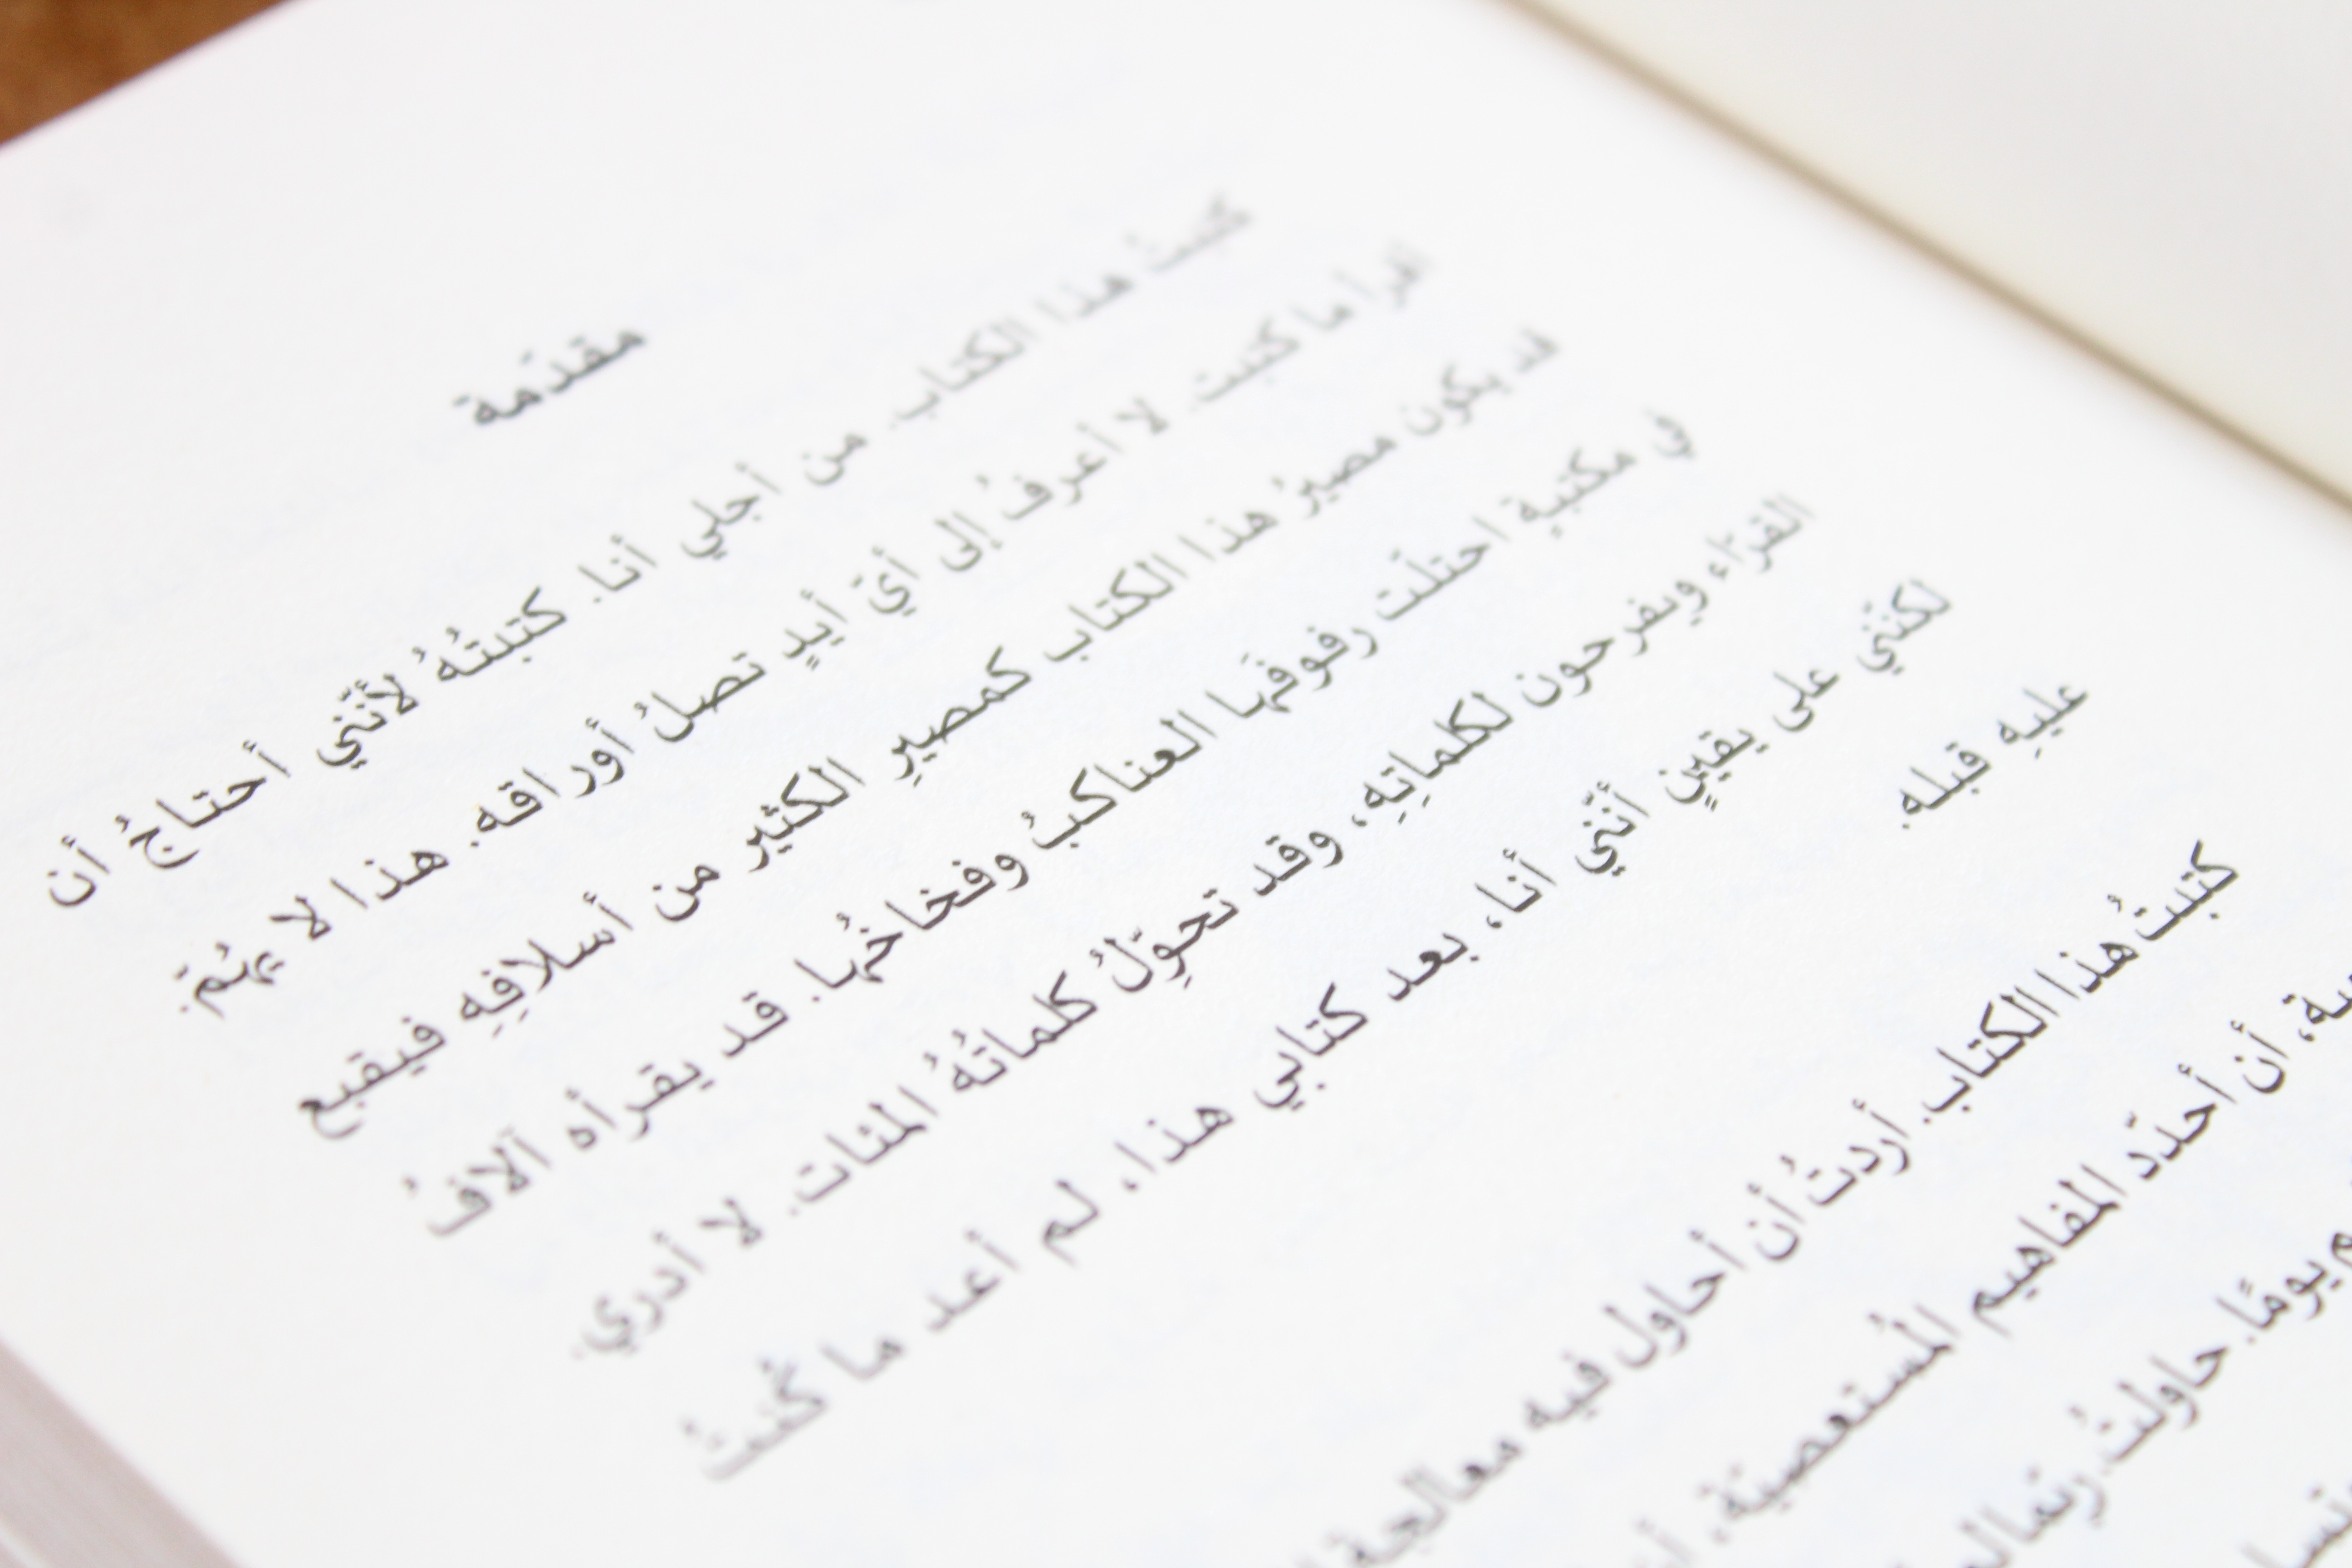 مقدّمة
كتبتُ هذا الكتاب. من أجلي أنا. كتبتُهُ لأنّني أحتاجُ أن
اقرأ ما كتبت. لا أعرفُ إلى أيّ أيدٍ تصلُ أوراقه. هذا لا يهُمّ.
قد يكون مصيرُ هذا الكتاب كمصيرِ الكثير من أسلافِهِ فيقبع
في مكتبةٍ احتلّت رفوفَها العناكبُ وفخاخُها. قد يقرأه آلافُ
القرّاء ويفرحون لكلماتِهِ، وقد تحوِّلُ كلماتُهُ المئات. لا أدري.
لكنّني على يقينٍ أنّني أنا، بعد كتابي هذا، لم أعد ما كُنتُ
عليهِ قبله.
كتبتُ هذا الكتاب. أردتُ أن أحاول فيه معالجة
أن أحدّد المفاهيم المُستعصيّة.
يومًا. حاولتُ ربّما